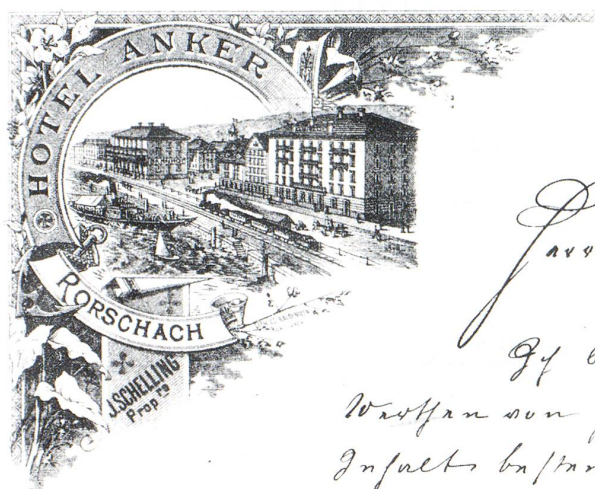 HOTEL ANKER
RORSCHACH
J. SCHELLING
Prop.re
Herr
Ich
Werthen von
Inhalts besten